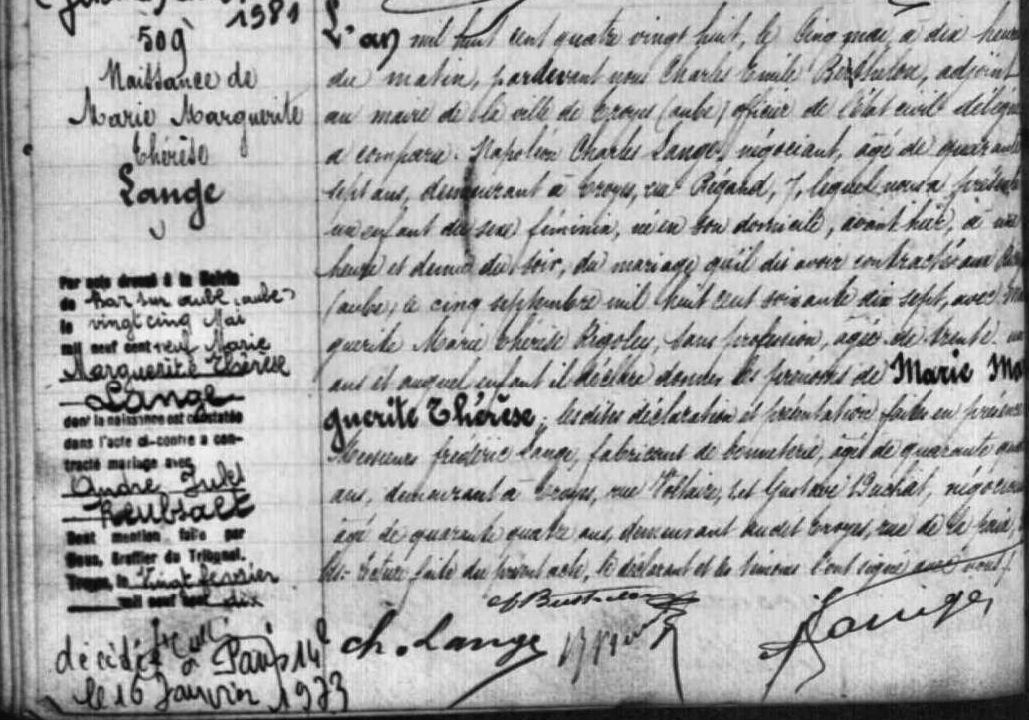 1981
509
Naissance de
Marie Marguerite
Thérèse
Lange
Par acte dressé à la Mairie
de Bar sur aube (aube)
le vingt cinq Mai
mil neuf cent neuf Marie
Marguerite Thérèse
Lange
dont la naissance est constatée
dans l'acte ci-contre a con-
tracté mariage avec
André Jules
Reubsaet
Dont mention faite par
Nous, Greffier du Tribunal.
Troyes, le vingt février
mil neuf cent dix
décédée à Paris 14e
le 16 Janvier 1973
L'an mil huit cent quatre vingt huit, le cinq mai, à dix heures
du matin, pardevant nous Charles Emile Berthelon, adjoint
au maire de la ville de Troyes (aube) officier de l'état civil délégué
a comparu Napoléon Charles Lange, négociant, âgé de quarante
sept ans, demeurant à Troyes, rue Bégard, 7, lequel nous a présenté
un enfant du sexe féminin, né en son domicile, avant hier, à une
heure et demie du soir, du mariage qu'il dit avoir contracté
(aube) le cinq septembre mil huit cent soixante dix sept, avec Mar
guerite Marie Thérèse Rigoley, sans profession, âgée de trente
ans et auquel enfant il déclare donner les prénoms de Marie Mar
guerite Thérèse; lesdites déclaration et présentation faites en présence
Messieurs frédéric Lange, fabricant de bonneterie, âgé de quarante
ans, demeurant à Troyes, rue Voltaire, et Gustave Duchat, négociant
âgé de quarante quatre ans, demeurant audit Troyes, rue de la paix,
Et lecture faite du présent acte, le déclarant et les témoins l'ont signé avec nous.
Ch. Lange
Lange